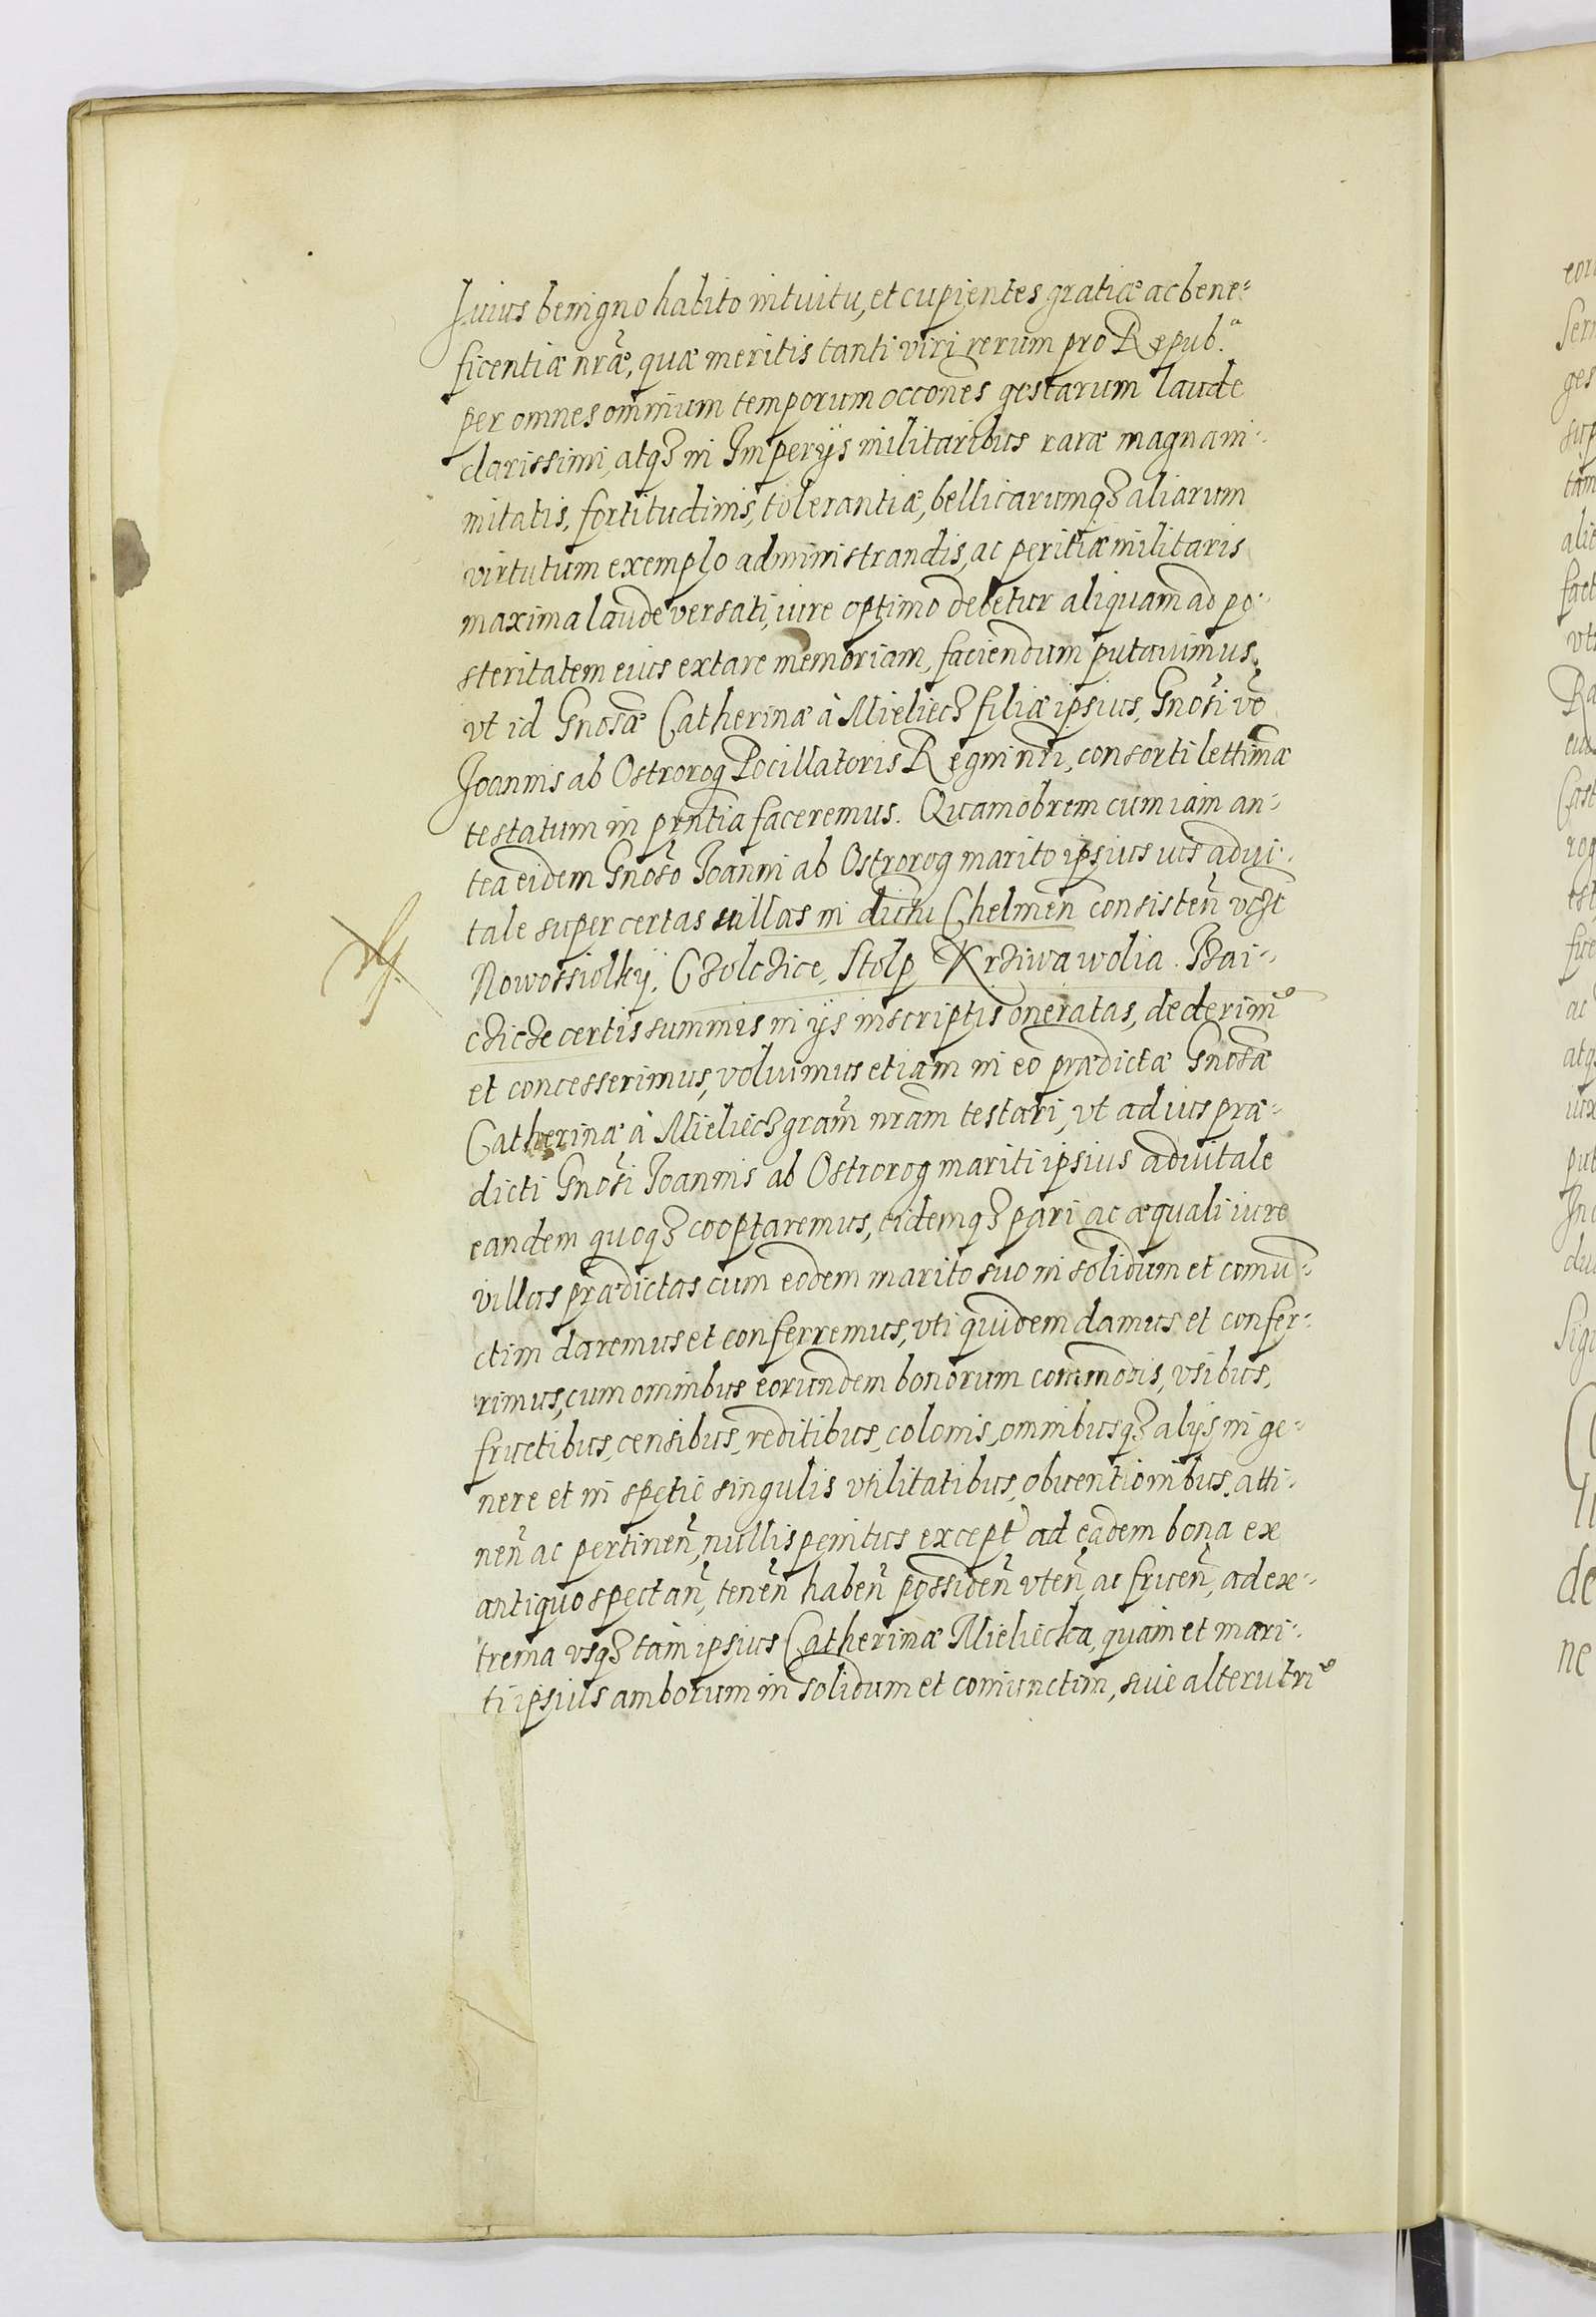 Huius benigno habito intuitu, et cupientes gratiæ ac bene-
ficentiæ nr̃æ, quæ meritis tanti viri rerum pro Repub.ª
per omnes omnium temporum occõnes gestarum laude
clarissimi, atqȝ in Imperijs militaribus raræ magnani-
mitatis, fortitudinis, tolerantiæ, bellicarumqȝ aliarum
virtutum exemplo administrandis, ac peritiæ militaris
maxima laude versati, iure optimo debetur aliquam ad po-
steritatem eius extare memoriam, faciendum putavimus,
vt id Gnosæ Catherinæ à Mieliecȝ filiæ ipsius, Gnosi vo
Joannis ab Ostrorog Pocillatoris Regni nri, consorti lettimæ
testatum in pr̃ntia faceremus. Quamobrem cum iam an-
tea eidem Gnoso Joanni ab Ostrorog marito ipsius ius advi-
tale super certas villas in dictu Chelmeñ consisteñ vcȝt
Nowossiolky, Cȝolcȝice, Stolp Krȝiwawolia. Pȝai-
cȝicȝe certis summis in ijs inscriptis oneratas, dederim9
et concesserimus, voluimus etiam in eo prædictæ Gnosæ
Catherinæ à Mieliecȝ gram̃ nram̃ testari, vt ad ius præ-
dicti Gnosi Joannis ab Ostrorog mariti ipsius advitale
eandem quoqȝ cooptaremus, eidemqȝ pari ac æquali iure
villas prædictas cum eodem marito suo in solidum et coniu-
ctim daremus et conferremus, vti quidem damus et confer-
rimus, cum omnibus eorundem bonorum commodis, vsibus,
fructibus, censibus, reditibus, colonis, omnibusqȝ alijs in ge-
nere et in spetie singulis vtilitatibus, obventionibus, atti-
neñ ac pertineñ, nullis penitus except ad eadem bona ex
antiquo spectañ, teneñ habeñ possideñ vteñ, ac frueñ, ad ex-
trema vsqȝ tam ipsius Catherinæ Mielieczka, quam et mari-
ti ipsius amborum in solidum et coniunctim, sive alterutri9